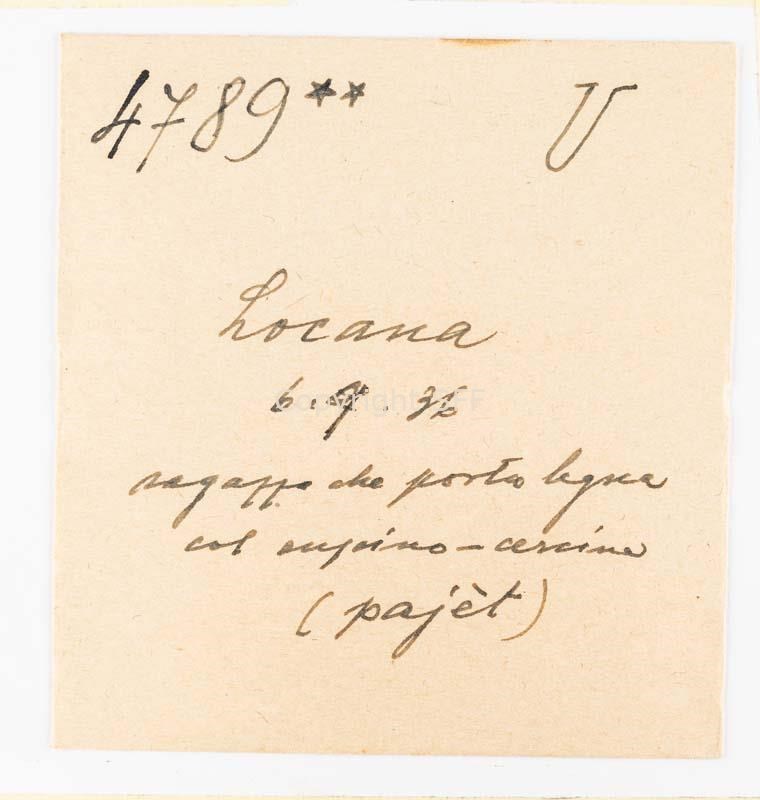 4789** U
Locana
6.9.36
ragazzo che porta legna
col cuscino-cercine
(pajèt)